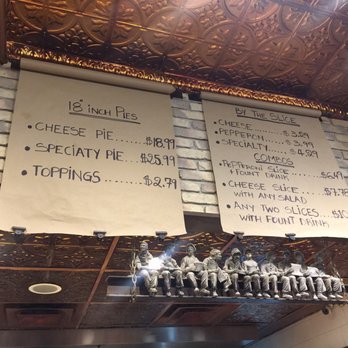 18" inch Pies
• CHEESE PIE.....$18.99
• SPECIATY PIE...$25.99
• TOPPINGS.......$2.99
BY THE SLICE
• CHEESE........$3.29
• PEPPERON.....$3.89
• SPECIALTY....$4.89
COMBOS
• PEPTERON SLICE
+ FOUNT DRINK
• CHEESE SLICE
WITH ANY SALAD
• ANY TWO SLICES
WITH FOUNT DRINK